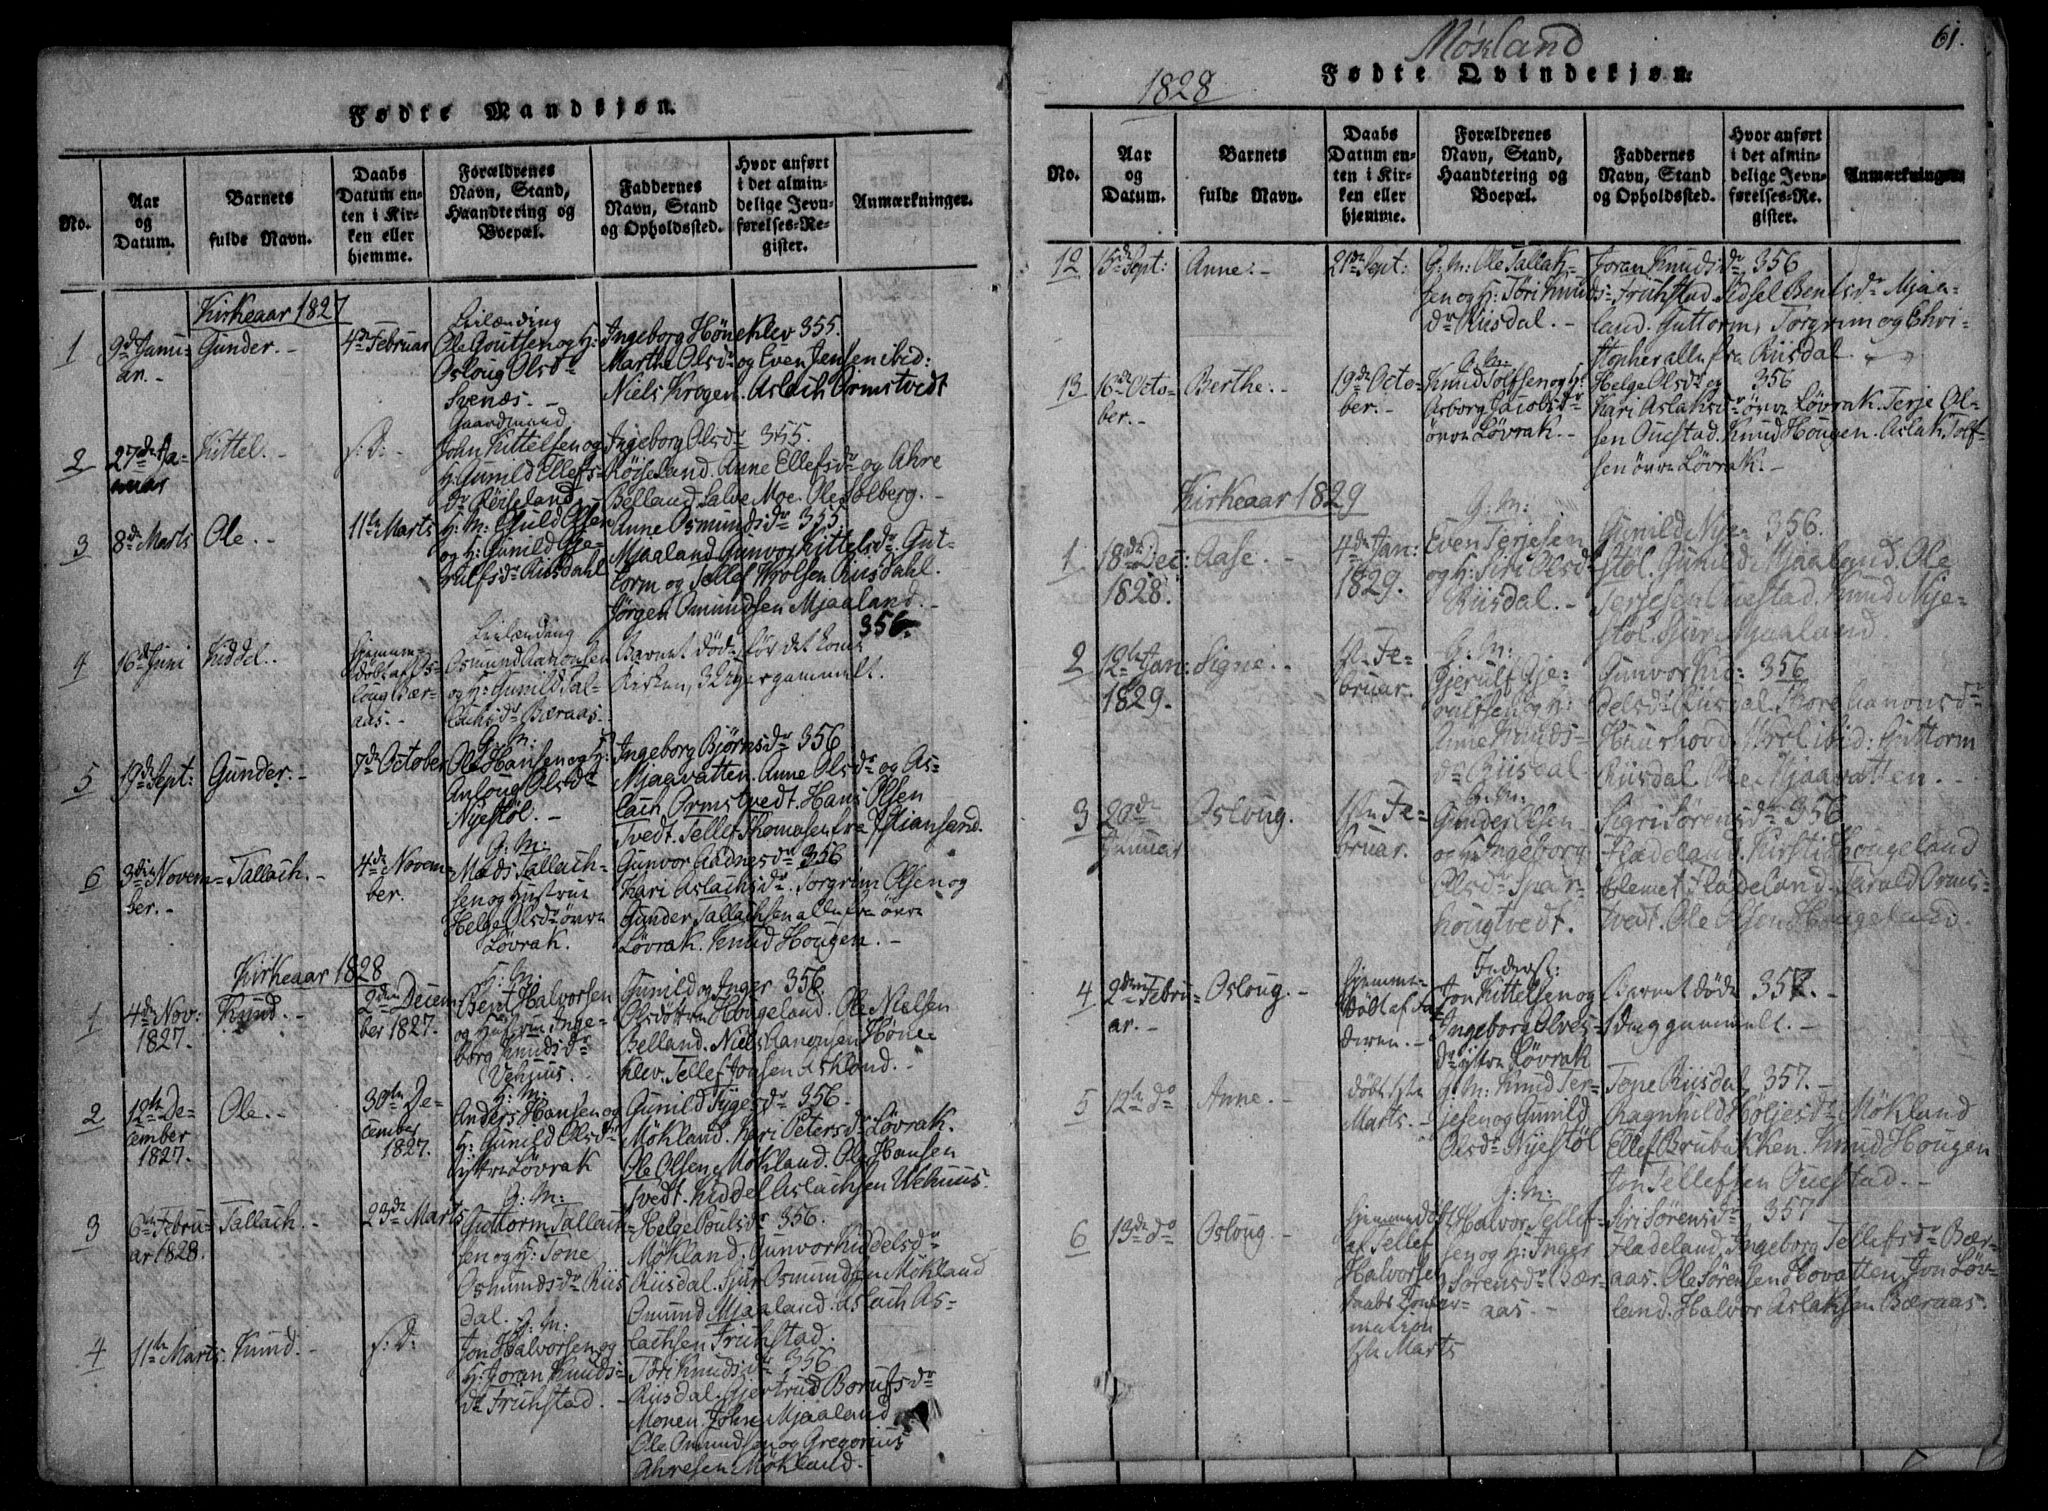 Fødte Mandkjøn.
No.
Aar
og
Datum.
Barnets
fulde Navn.
Daabs
Datum en-
ten i Kir-
ken eller
hjemme.
Forældrenes
Navn, Stand,
Haandtering og
Boepæl.
Faddernes
Navn, Stand
og Opholdssted.
Hvor anført
i det almin-
delige Jevn-
førelses-Re-
gister.
Anmærkninger.
Kirkeaar 1827
1
9de Janu-
ar.
Gunder.
4de Februar
Leilænding
Ole Goutsen og H:
Osloug Olsdr
Svenæs.
Ingeborg Höneklev 355.
Marthe Olsdr og Even Jensen ibid:
Niels Krogen. Aslach Ormstvedt
2
27de Ja-
nuar
Kittel.
s. D:
Gaardmand
John Kittelsen og
H: Gunild Ellefs-
dr Röiseland
Ingeborg Olsdr 355.
Röiseland. Anne Ellefsdr og Ahre
Belland. Salve Moe. Ole Solberg.
3
8de Marts
Ole.
11te Marts
G: M: Eluld Olsen
og H: Gunild Gje-
rulfsdr Riisdahl
Anne Osmundsdr 355.
Mjaaland. Gunvor Kittelsdr. Gut-
torm og Tellef Wrolsen Riisdahl.
Jörgen Omundsen Mjaaland.
4
16de Juni
Kiddel.
hjemme-
döbt af Os-
loug Bær-
aas.
Leilænding
Osmund Aanonsen
og H: Gunild Tal-
lachsdr Bæraas.
Barnet döde för det kom i 356.
Kirken, 3 Uger gammelt.
5
19de Sept:
Gunder.
7de October
G: M:
Ole Hansen og H:
Anloug Olsdr
Nyestöl.
Ingeborg Björnsdr 356
Mjaavatten. Anne Olsdr og As-
lach Ormstvedt. Hans Olsen
Tvedt. Tellef Thomasen fra Xstiansand.
6
3die Novem-
ber.
Tallach.
4de Novem-
ber.
G: M:
Mads Tallach-
sen og Hustrue
Helge Olsdr övre
Lövrak.
Gunvor Aadnesdr 356
Kari Aslachsdr. Torgrim Olsen og
Gunder Tallachsen alle fra övre
Lövrak. Knud Hougen.
Kirkeaar 1828
1
4de Nov:
1827.
Knud.
2den Decem-
ber 1827.
G: M:
Bent Halvorsen
og Hustrue Inge-
borg Knudsdr
Vehuus.
Gunild og Inger 356.
Olsdöttre Hougeland. Ole Nielsen
Belland. Niels Aanonsen Höne-
klev. Tellef Jonsen Askland.
2
12te De-
cember
1827.
Ole.
30te De-
cember
1827.
G: M:
Anders Hansen og
H: Gunild Olsdr
Östre Lövrak
Gunild Tygesdr 356.
Mökland. Kari Petersdr Lövrak.
Ole Olsen Mökland. Ole Hansen
Tvedt. Kiddel Aslachsen Wehuus.
3
6te Febru-
ar 1828.
Tallach.
23de Marts
G: M:
Guttorm Tallach-
sen og H: Tone
Osmundsdr Riis-
dal.
Helge Poulsdr 356.
Mökland. Gunvor Kiddelsdr
Riisdal. Sjur Osmundsen Mökland
Omund Mjaaland. Aslach As-
lachsen Friihstad.
4
11te Marts
Knud.
s. D:
G: M:
Jon Halvorsen og
H: Joran Knuds-
dr Friihstad.
Töri Knudsdr 356
Riisdal. Gjertrud Borufsdr
Monen. John Mjaaland
Ole Omundsen og Gregorius
Ahresen Mökland.
Mökland
61.
1828
Fødte Qvindekjøn.
No.
Aar
og
Datum.
Barnets
fulde Navn.
Daabs
Datum en-
ten i Kir-
ken eller
hjemme.
Forældrenes
Navn, Stand,
Haandtering og
Boepæl.
Faddernes
Navn, Stand
og Opholdssted.
Hvor anført
i det almin-
delige Jevn-
førelses-Re-
gister.
Anmærkninger.
12
15de Sept:
Anne.
21de Sept:
G: M: Ole Tallak-
sen og H: Töri Knuds-
dr Riisdal.
Joran Knudsdr 356
Friihstad. Sidsel Bentsdr Mjaa-
land. Guttorm, Torgrim og Chri-
stopher alle fra Riisdal
13
16de Octo-
ber.
Berthe.
19de Octo-
ber.
G: M:
Knud Tolfsen og H:
Asborg Jacobsdr
övre Lövrak.
Helge Olsdr og 356
Kari Aslaksdr övre Lövrak. Terje Ol-
sen Ouestad. Knud Hougen. Aslak Tolf-
sen övre Lövrak.
Kirkeaar 1829
1
18de Dec:
1828.
Aase.
4de Jan:
1829.
G: M:
Even Terjesen
og H: Siri Olsdr
Riisdal.
Gunild Nye- 356.
stöl. Gunild Mjaaland. Ole
Terjesen Ouestad. Knud Nye-
stöl. Sjur Mjaaland.
2
12te Jan:
1829.
Signe.
1ste Fe-
bruar.
G: M:
Gjerulf Gje-
rulfsen og H:
Anne Knuds-
dr Riisdal
Gunvor Kid- 356
delsdr Riisdal. Thore Aanonsdr
Haurhove. Wrol ibid: Guttorm
Riisdal. Ole Mjaavatten.
3
20de
Januar
Osloug.
1ste Fe-
bruar.
G: M:
Gunder Olsen
og H: Ingeborg
Olsdr Spar-
hougtvedt.
Sigri Sörensdr 356
Fladeland. Kirsti Hougeland
Clemet Fladeland. Harald Orms-
tvedt. Ole Olsen Hougeland.
4
2den Febru-
ar.
Osloug.
hjemme-
döbt af Fa-
deren.
Inderst:
Jon Kittelsen og
Ingeborg Olves-
dr östre Lövrak
Barnet döde 357.
1 Dag gammelt.
5
12te do
Anne.
döbt 1ste
Marts.
G: M: Knud Ter-
jesen og Gunild
Olsdr Nyestöl
Tone Riisdal 357.
Ragnhild Höljesdr Mökland
Ellef Brubakken. Knud Hougen
Jon Tellefsen Ouestad.
6
13de do
Osloug.
hjemmedöbt
af Tellef
Halvorsen
Daabs Confir-
mation
1ste Marts
G: M:
Halvor Tellef-
sen og H: Inger
Sörensdr Bær-
aas.
Siri Sörensdr 357
Fladeland. Ingeborg Tellefsdr Bær-
aas. Ole Sörensen Hovatten. Jon Löv-
land. Halvor Aslaksen Bæraas.